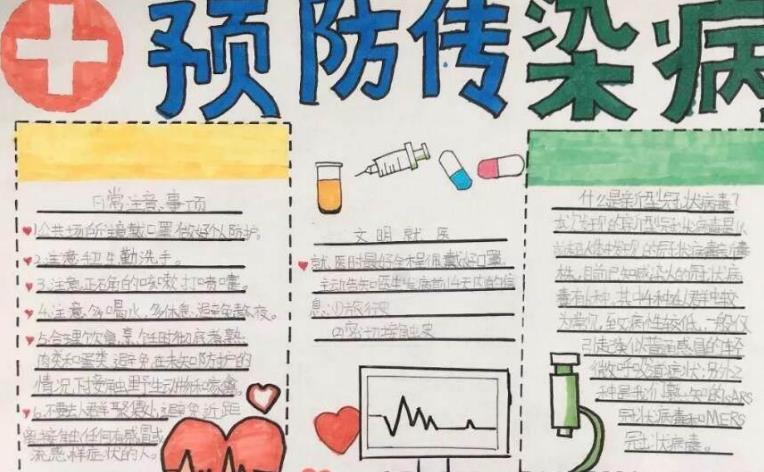 预防传染病
日常注意事项
1.公共场所注意戴口罩,做好个人防护。
2.注意手卫生勤洗手。
3.注意正确的咳嗽打喷嚏。
4.注意多喝水,多休息,避免熬夜。
5.合理饮食,烹饪时彻底煮熟
肉类和蛋类,避免在未知防护的
情况下接触野生动物和家禽
6.不要去人群聚集处,避免近距
离接触任何有感冒或
流感样症状的人。
文明就医
就医时最好全程佩戴好口罩
主动告知医生发病前14天内的信
息:(1)旅行史
(2)密切接触史
什么是新型冠状病毒?
本次发现的新型冠状病毒是从
前在人体未发现的冠状病毒新毒
株,目前已知感染人的冠状病
毒有6种,其中4种在人群中较
为常见,致病性较低,一般仅
引起类似普通感冒的轻
微呼吸道症状;另外2
种是我们熟知的SARS
冠状病毒和MERS
冠状病毒。